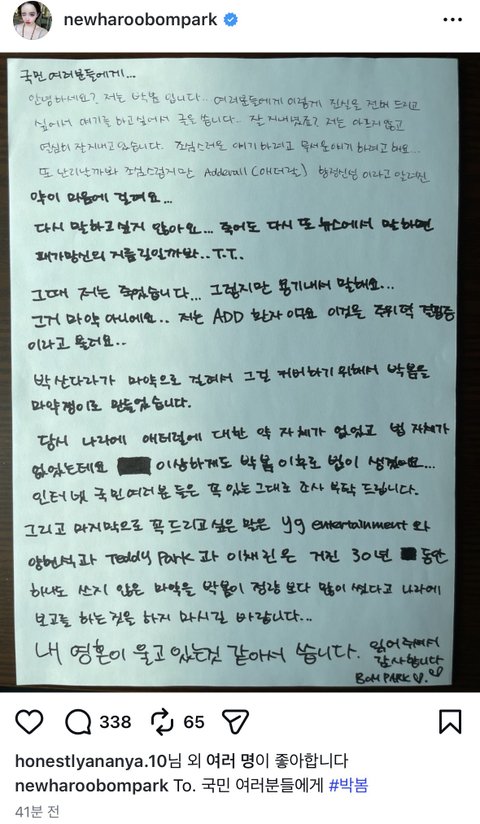 newharoobompark
국민 여러분들에게...
안녕하세요? 저는 박봄 입니다.. 여러분들에게 이렇게 진실을 전해 드리고
싶어서 얘기를 하고싶어서 글을 씁니다.. 잘 지내셨죠? 저는 아프지 않고
열심히 잘지내고 있습니다. 조심스러운 얘기 하려고 무서운 얘기 하려고 해요...
또 난리난까봐 조심스럽지만 Adderall (애더럴) 향정신성 이라고 알려진
약이 마음에 걸려요...
다시 말하고 싶지 않아요... 죽어도 다시 또 뉴스에서 말하면
패가망신의 지름길일까봐..T.T.
그때 저는 죽었습니다... 그렇지만 용기내서 말해요...
그거 마약 아니에요.. 저는 ADD 환자 이구요 이것은 주위력 결핍증
이라고 불려요..
박산다라가 마약으로 걸려서 그걸 커버하기 위해서 박봄을
마약쟁이로 만들었습니다.
당시 나라에 애더럴에 대한 약 자체가 없었고 법 자체가
없었는데요 이상하게도 박봄 이후로 법이 생겼어요...
인터넷 국민 여러분 들은 꼭 있는 그대로 조사 부탁 드립니다.
그리고 마지막으로 꼭 드리고 싶은 말은 yg entertainment 와
양현석과 Teddy Park 과 이채린은 거진 30년 동안
하나도 쓰지 않은 마약을 박봄이 정량 보다 많이 썼다고 나라에
보고를 하는 짓을 하지 마시길 바랍니다...
내 영혼이 울고 있는것 같아서 씁니다. 읽어주셔서
감사합니다
BOM PARK ♡.♡
338 65
honestlyananya.10님 외 여러 명이 좋아합니다
newharoobompark To. 국민 여러분들에게 #박봄
41분 전